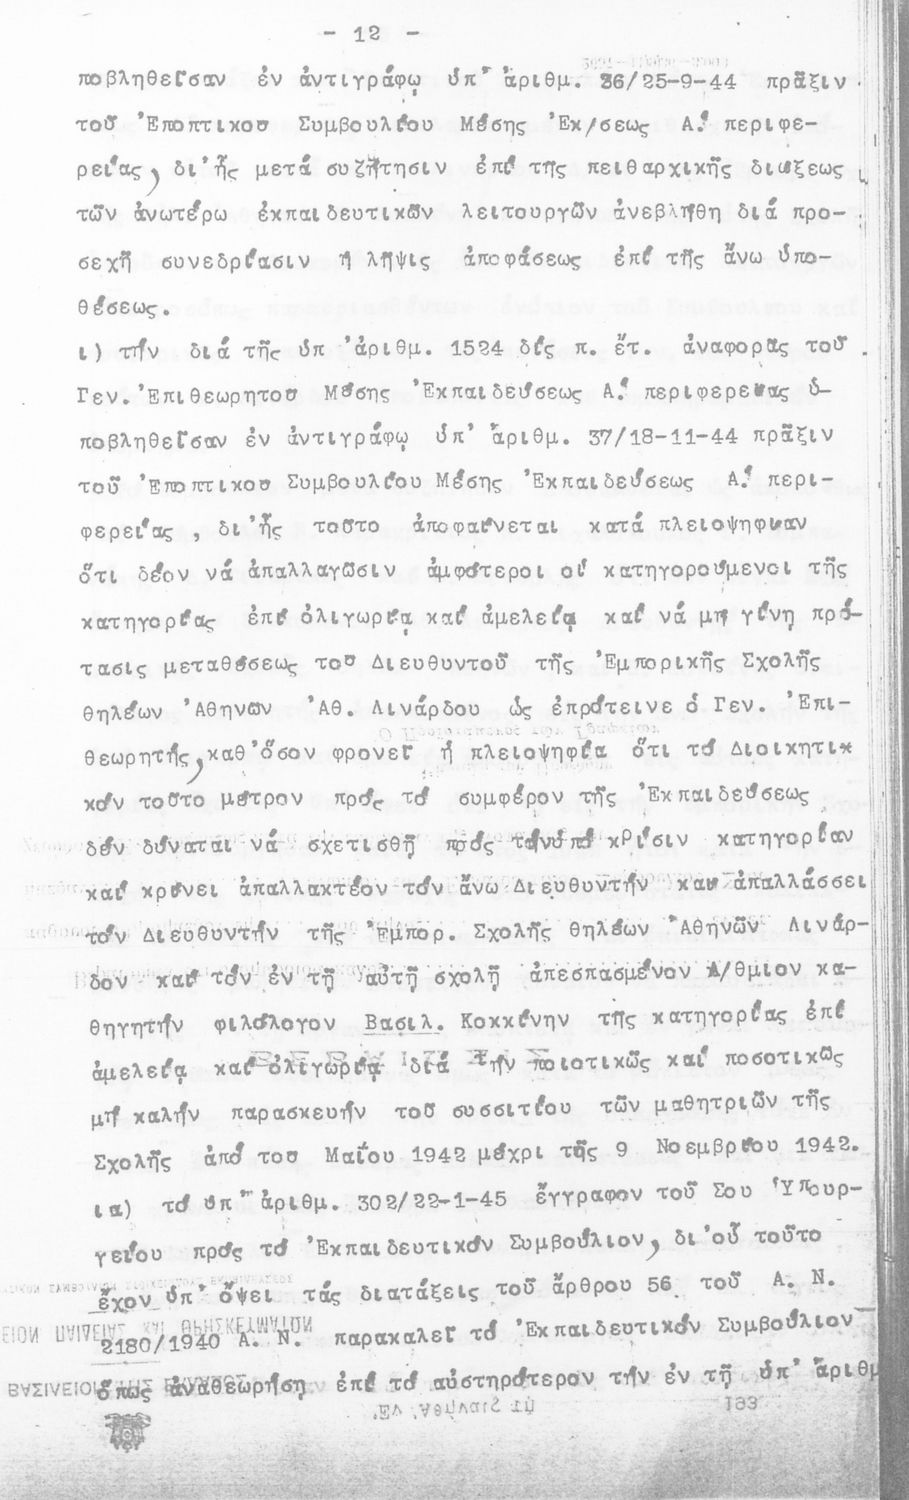 - 12 -
ποβληθεῖσαν ἐν ἀντιγράφῳ ὑπ' ἀριθμ. 36/25-9-44 πρᾶξιν
τοῦ Ἐποπτικοῦ Συμβουλίου Μέσης Ἐκ/σεως Α! περιφε-
ρείας, δι'ἧς μετά συζήτησιν ἐπί τῆς πειθαρχικῆς διώξεως
τῶν ἀνωτέρω ἐκπαιδευτικῶν λειτουργῶν ἀνεβλήθη διά προ-
σεχῆ συνεδρίασιν ἡ λῆψις ἀποφάσεως ἐπί τῆς ἄνω ὑπο-
θέσεως.
ι) τήν διά τῆς ὑπ 'ἀριθμ. 1524 δίς π. ἔτ. ἀναφορᾶς τοῦ
Γεν. Ἐπιθεωρητοῦ Μέσης Ἐκπαιδεύσεως Α! περιφερείας ὑ-
ποβληθεῖσαν ἐν ἀντιγράφῳ ὑπ' ἀριθμ. 37/18-11-44 πρᾶξιν
τοῦ Ἐποπτικοῦ Συμβουλίου Μέσης Ἐκπαιδεύσεως Α! περι-
φερείας , δι'ἧς τοῦτο ἀποφαίνεται κατά πλειοψηφίαν
ὅτι δέον νά ἀπαλλαγῶσιν ἀμφότεροι οἱ κατηγορούμενοι τῆς
κατηγορίας ἐπί ὀλιγωρίᾳ καί ἀμελείᾳ καί νά μή γίνῃ πρό-
τασις μεταθέσεως τοῦ Διευθυντοῦ τῆς Ἐμπορικῆς Σχολῆς
θηλέων Ἀθηνῶν Ἀθ. Λινάρδου ὡς ἐπρότεινε ὁ Γεν. Ἐπι-
θεωρητής, καθ'ὅσον φρονεῖ ἡ πλειοψηφία ὅτι τό Διοικητικ
κόν τοῦτο μέτρον πρός τό συμφέρον τῆς Ἐκπαιδεύσεως
δέν δύναται νά σχετισθῇ πρός τήνὑπό κρίσιν κατηγορίαν
καί κρίνει ἀπαλλακτέον τόν ἄνω Διευθυντήν καί ἀπαλλάσσει
τόν Διευθυντήν τῆς Ἐμπορ. Σχολῆς θηλέων Ἀθηνῶν Λινάρ-
δον καί τόν ἐν τῇ αὐτῇ σχολῇ ἀπεσπασμένον Δ/θμιον κα-
θηγητήν φιλόλογον Βασιλ. Κοκκίνην τῆς κατηγορίας ἐπί
ἀμελείᾳ καί ὀλιγωρίᾳ διά τήν ποιοτικῶς καί ποσοτικῶς
μή καλήν παρασκευήν τοῦ συσσιτίου τῶν μαθητριῶν τῆς
Σχολῆς ἀπό τοῦ Μαΐου 1942 μέχρι τῆς 9 Νοεμβρίου 1942.
ια) τό ὑπ' ἀριθμ. 302/22-1-45 ἔγγραφον τοῦ Σου Ὑπουρ-
γείου πρός τό Ἐκπαιδευτικόν Συμβούλιον, δι'οὗ τοῦτο
ἔχον ὑπ' ὄψει τάς διατάξεις τοῦ ἄρθρου 56 τοῦ Α. Ν.
2180/1940 Α. Ν. παρακαλεῖ τό Ἐκπαιδευτικόν Συμβούλιον
ὅπως ἀναθεωρήσῃ ἐπί τό αὐστηρότερον τήν ἐν τῇ ὑπ' ἀριθμ